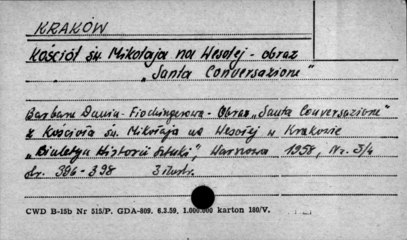 KRAKÓW
Kościół św. Mikołaja na Wesołej - obraz
"Santa Conversazione"
Barbara - Obraz "Santa Conversazione"
z Kościoła św. Mikołaja na Wesołej w Krakowie
"Biuletyn Historii Sztuki", Warszawa 1958, Nr. 3/4
str. 396-398 3 ilustr.
CWD B-15b Nr 515/P. GDA-809. 6.3.59, 1.000.000 karton 180/V.